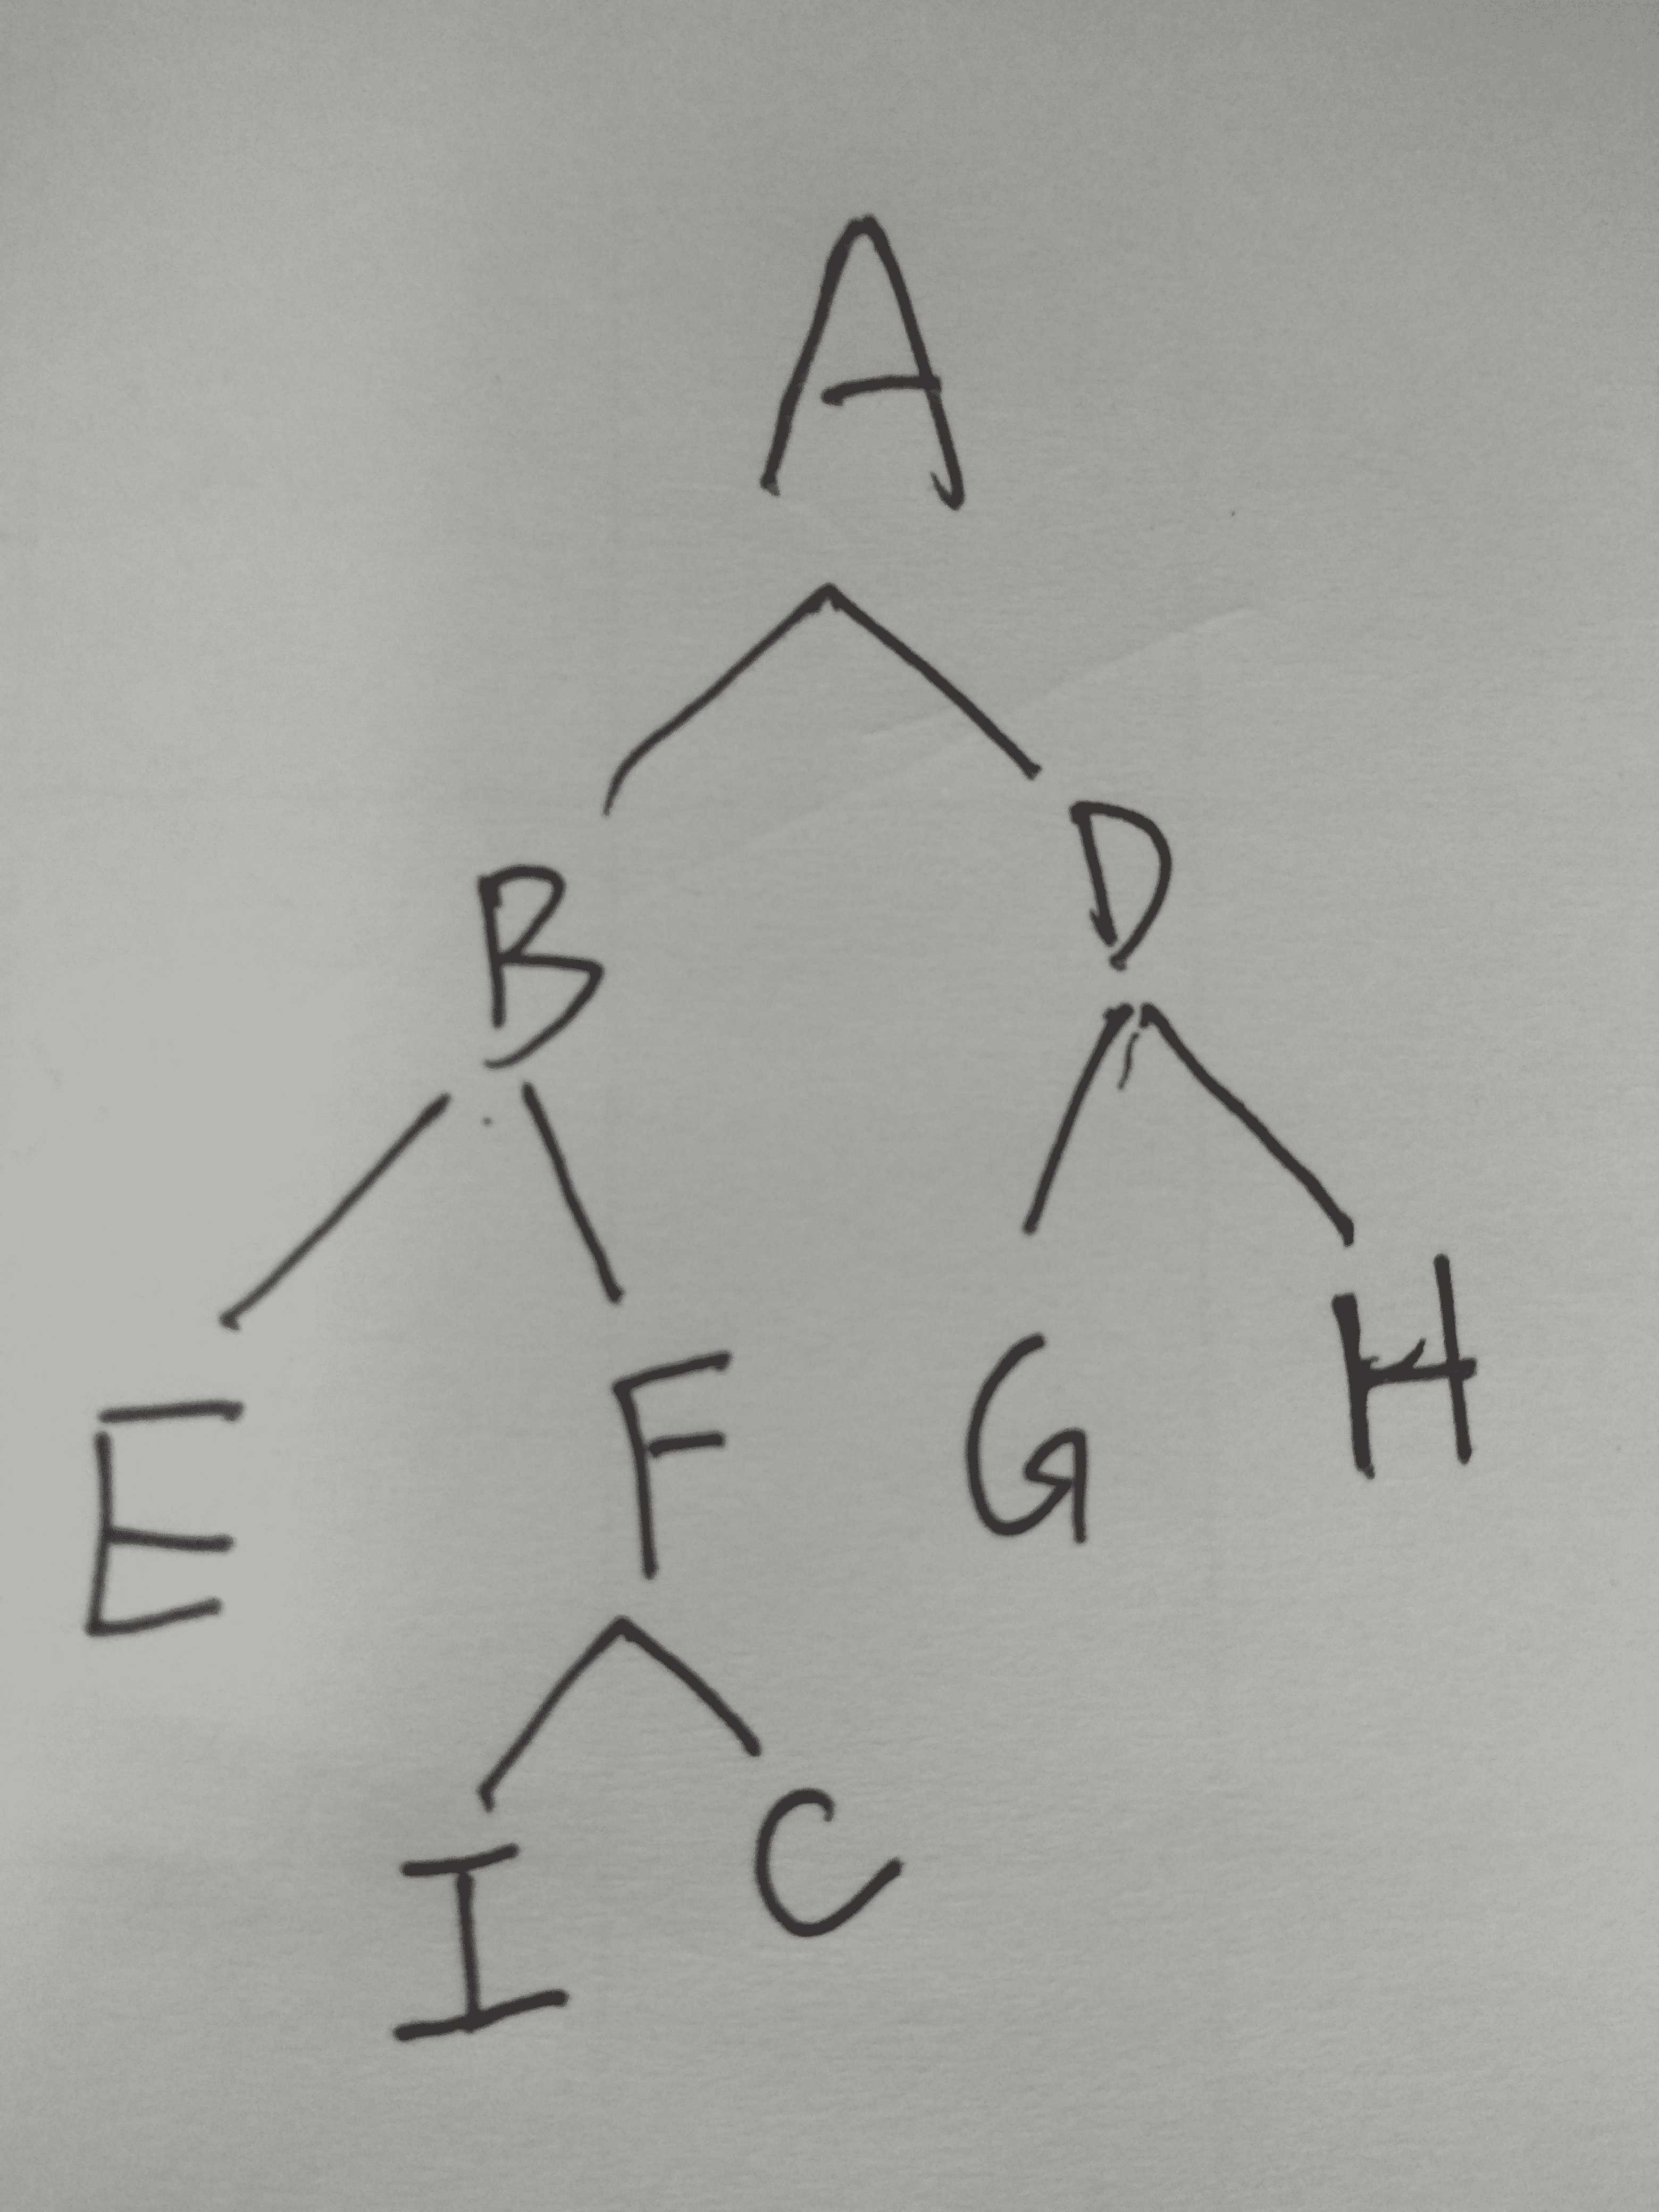 A
B D
E F G H
I C